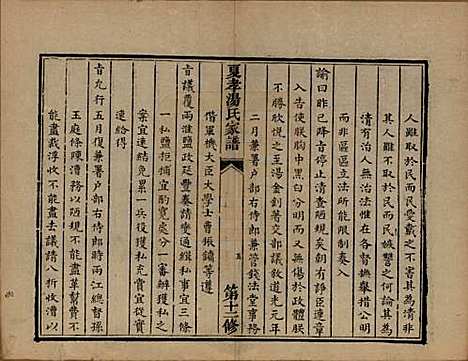 人雖取於民而民受戴之不可言其為非
其人雖不取於民而民嫉讐之何言其為
清有治人無治法惟在各督撫舉措公明
而非區區立法所能服制奏入
諭曰昨已降旨停止清查陋規矣朝有諍臣連章
入告使朕胸中黑白分明而又無傷於政體朕
不勝欣悅之至湯金釗著交部議敘道光元年
二月兼署戶部右侍郎兼管錢法堂事務
夏孝湯氏家譜
第十二修
偕軍機大臣大學士曹振鏞等遵
旨議覆山西巡撫延豐奏請變通緝私事宜三條
一私鹽拒捕宜究兼獲私充賞宜定
案宜速結免累一兵役獲私充賞宜從
速給得
旨允行五月兼署戶部右侍郎時兩江總督孫
玉庭條陳漕務以陋規不能盡革幫費不
能盡裁浮收不能盡去議請八折收漕以